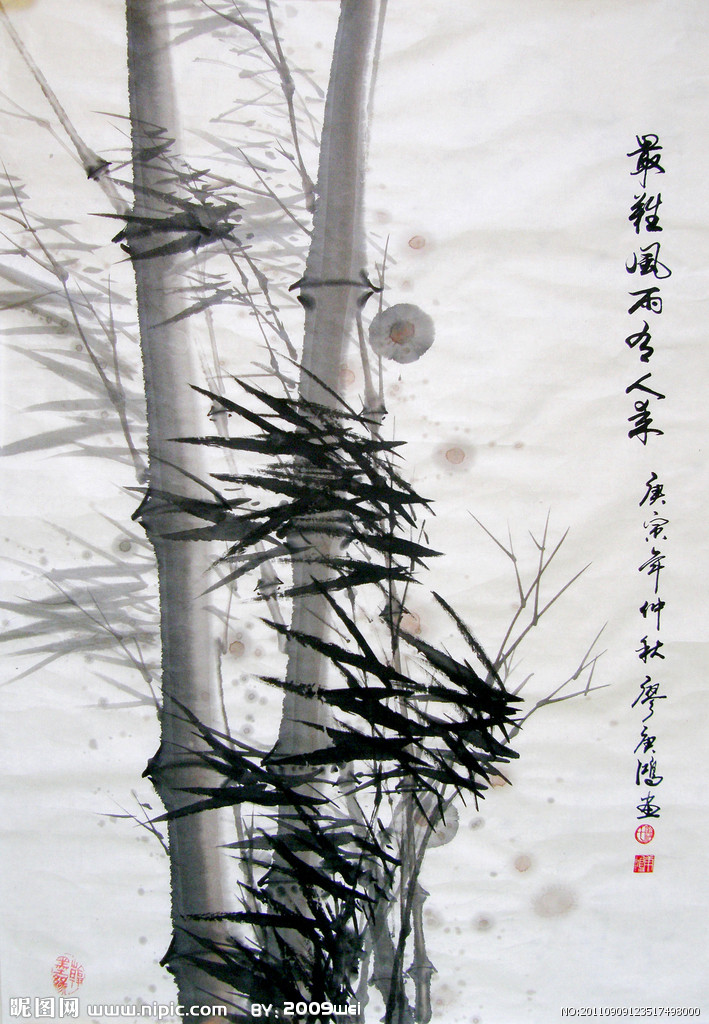 最難風雨有人來
庚寅年仲秋廖庚鴻畫
昵图网 www.nipic.com BY: 2009wei
NO:20110909123517498000